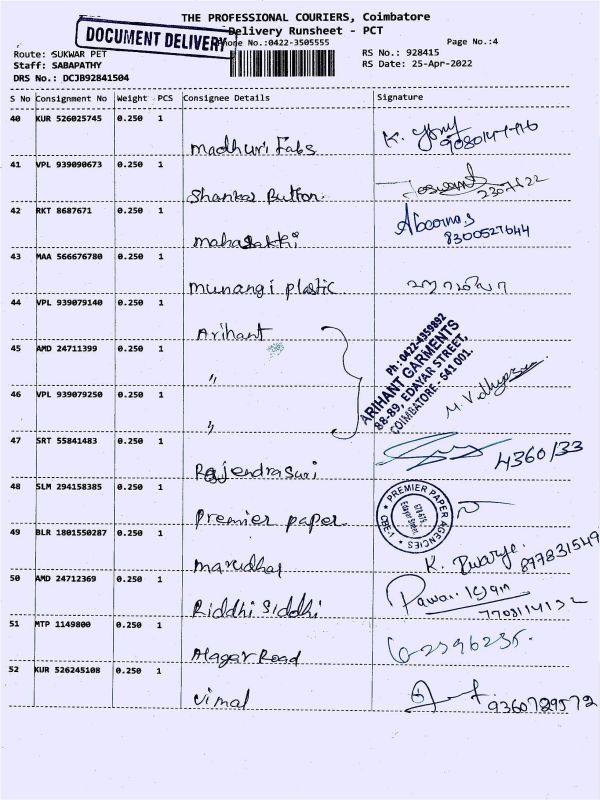 THE PROFESSIONAL COURIERS, Coimbatore
DOCUMENT DELIVERY
Delivery Runsheet - PCT
Phone No.:0422-3505555
Page No.:4
Route: SUKWAR PET
RS No.: 928415
Staff: SABAPATHY
RS Date: 25-Apr-2022
DRS No.: DCJB92841504
S No Consignment No Weight PCS Consignee Details Signature
40 KUR 526025745 0.250 1
Madhuri Fabs
41 VPL 939090673 0.250 1
Shankar Button
42 RKT 8687671 0.250 1
Mahasakthi 8300527644
43 MAA 566676780 0.250 1
munangi plastic
44 VPL 939079140 0.250 1
Arihant
45 AMD 24711399 0.250 1
"
Ph : 0422-4359892
ARIHANT GARMENTS
88-89, EDAYAR STREET,
COIMBATORE - 641 001.
46 VPL 939079250 0.250 1
"
47 SRT 55841483 0.250 1
Rajendra Suri 4360133
48 SLM 294158385 0.250 1
Premier paper
PREMIER PAPER AGENCIES
CBE-1
Edayar Street
49 BLR 1801550287 0.250 1
Marudhar K.
50 AMD 24712369 0.250 1
Riddhi Siddhi
51 MTP 1149800 0.250 1
Alagar Road
52 KUR 526245108 0.250 1
Vimal 9360729572